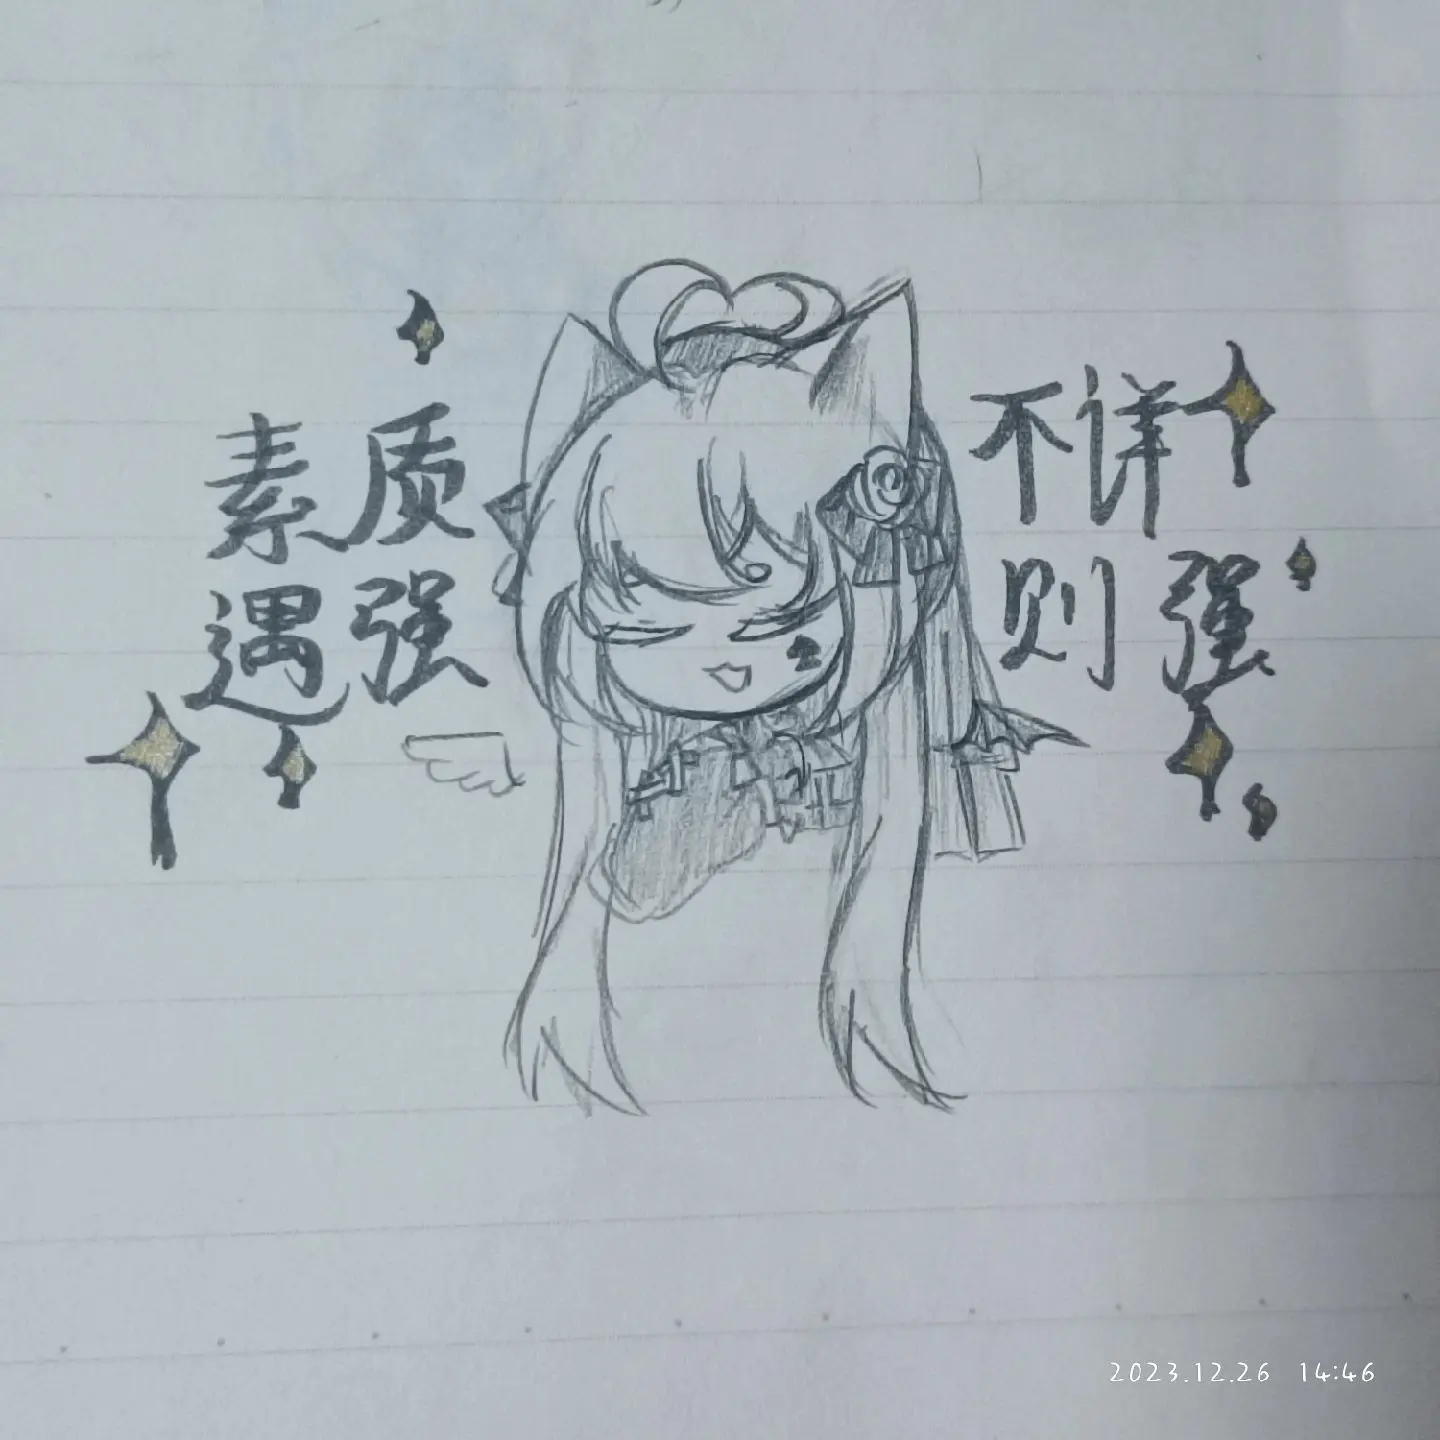 素质不详
遇强则强
2023.12.26 14:46